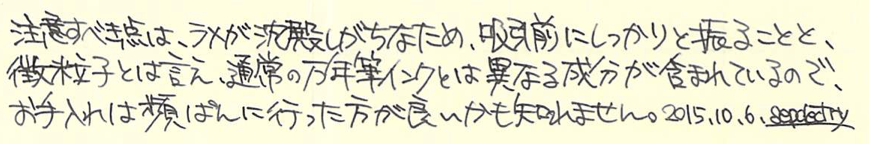 注意すべき点は、ラメが沈殿しがちなため、吸引前にしっかりと振ることと、
微粒子とは言え、通常の万年筆インクとは異なる成分が含まれているので、
お手入れは頻ぱんに行った方が良いかも知れません。2015.10.6.